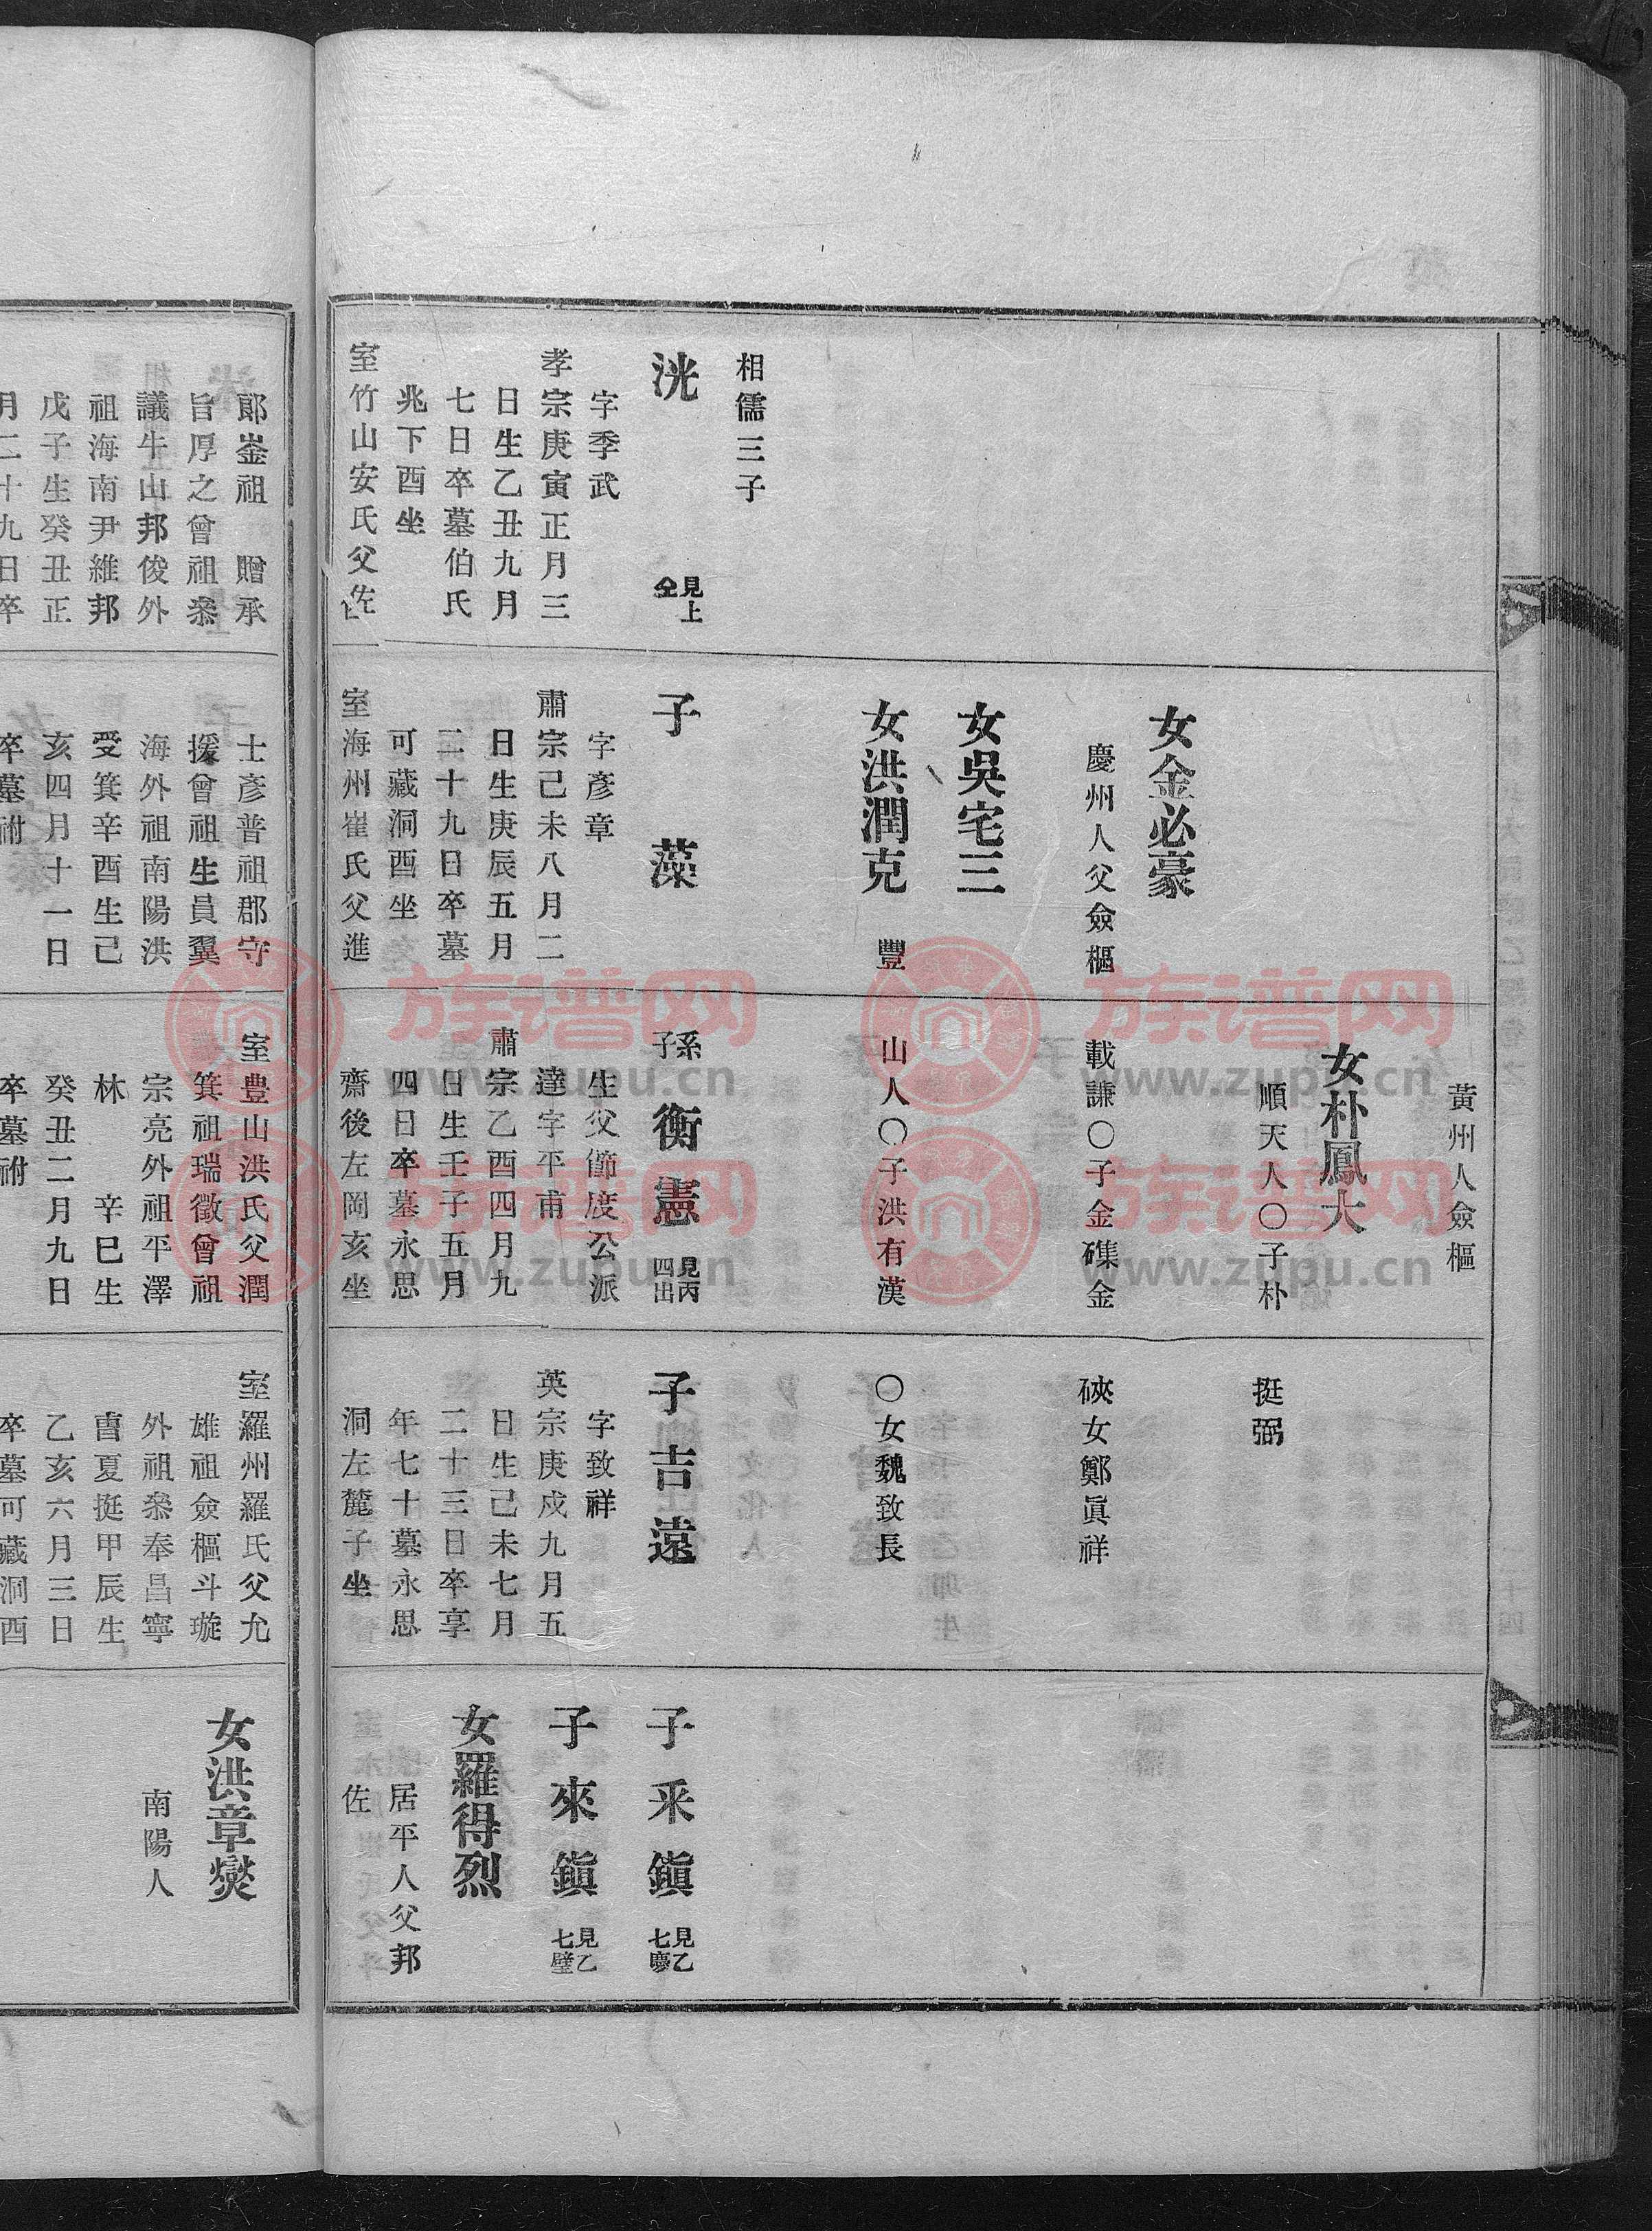 相儒三子
洸
見上
仝
字季武
孝宗庚寅正月三
日生乙丑九月
七日卒墓伯氏
兆下酉坐
室竹山安氏父佐
女金必豪
慶州人父僉樞
女吳宅三
女洪潤克
豐
子藻
字彦章
肅宗己未八月二
日生庚辰五月
二十九日卒墓
可藏洞酉坐
室海州崔氏父進
黃州人僉樞
女朴鳳大
順天人〇子朴
載謙〇子金磼金
山人〇子洪有漢
系子
孫衡憲
見丙
四出
生父節度公派
達字平甫
肅宗乙酉四月九
日生壬子五月
四日卒墓永思
齋後左岡亥坐
挺弼
硤女鄭眞祥
〇女魏致長
子吉遠
字致祥
英宗庚戍九月五
日生己未七月
二十三日卒享
年七十墓永思
洞左麓子坐
子釆鎭
見乙
七慶
子來鎭
見乙
七壁
女羅得烈
居平人父邦
佐
郞崟祖 贈承
旨厚之曾祖叅
議牛山邦俊外
祖海南尹維邦
戊子生癸丑正
月二十九日卒
士彦普祖郡守
援曾祖生員翼
海外祖南陽洪
受箕辛酉生己
亥四月十一日
卒墓祔
室豊山洪氏父潤
箕祖瑞徵曾祖
宗亮外祖平澤
林 辛巳生
癸丑二月九日
卒墓祔
室羅州羅氏父允
雄祖僉樞斗璇
外祖叅奉昌寧
曺夏挺甲辰生
乙亥六月三日
卒墓可藏洞酉
女洪章爕
南陽人
族谱网
www.zupu.cn
族谱网
www.zupu.cn
族谱网
www.zupu.cn
族谱网
www.zupu.cn